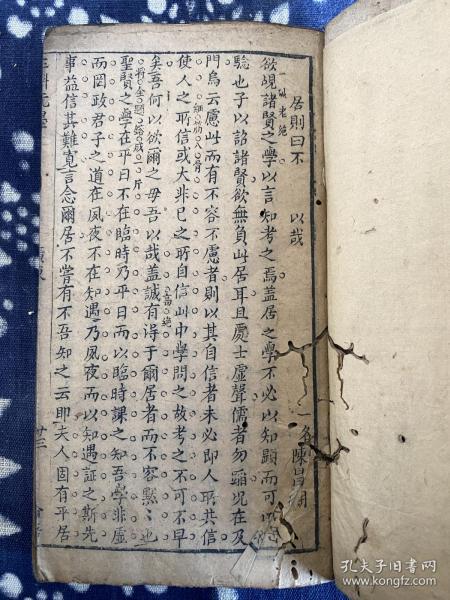 居則曰不　以哉
一名陳昌
欲覘諸賢之學以言知考之焉蓋居之學不必以知顯而可以
驗也子以詔諸賢欲無負此居耳且處士虛聲儒者勿蹈況在及
門烏云慮此而有不容不慮者則以其自信者未必即人所共信
使人之所信或大非已之所自信此中學問之故考之不可不早
矣吾何以欲爾之毋吾以哉蓋誠有得于爾居者而不容默
聖賢之學在平日不在臨時乃平日而以臨時課之知吾學非虛
而罔政君子之道在夙夜不在知遇乃夙夜而以知遇証之斯先
事益信其難寬言念爾居不嘗有不吾知之云即夫人固有平居
廿三
孔夫子旧书网
www.kongfz.com